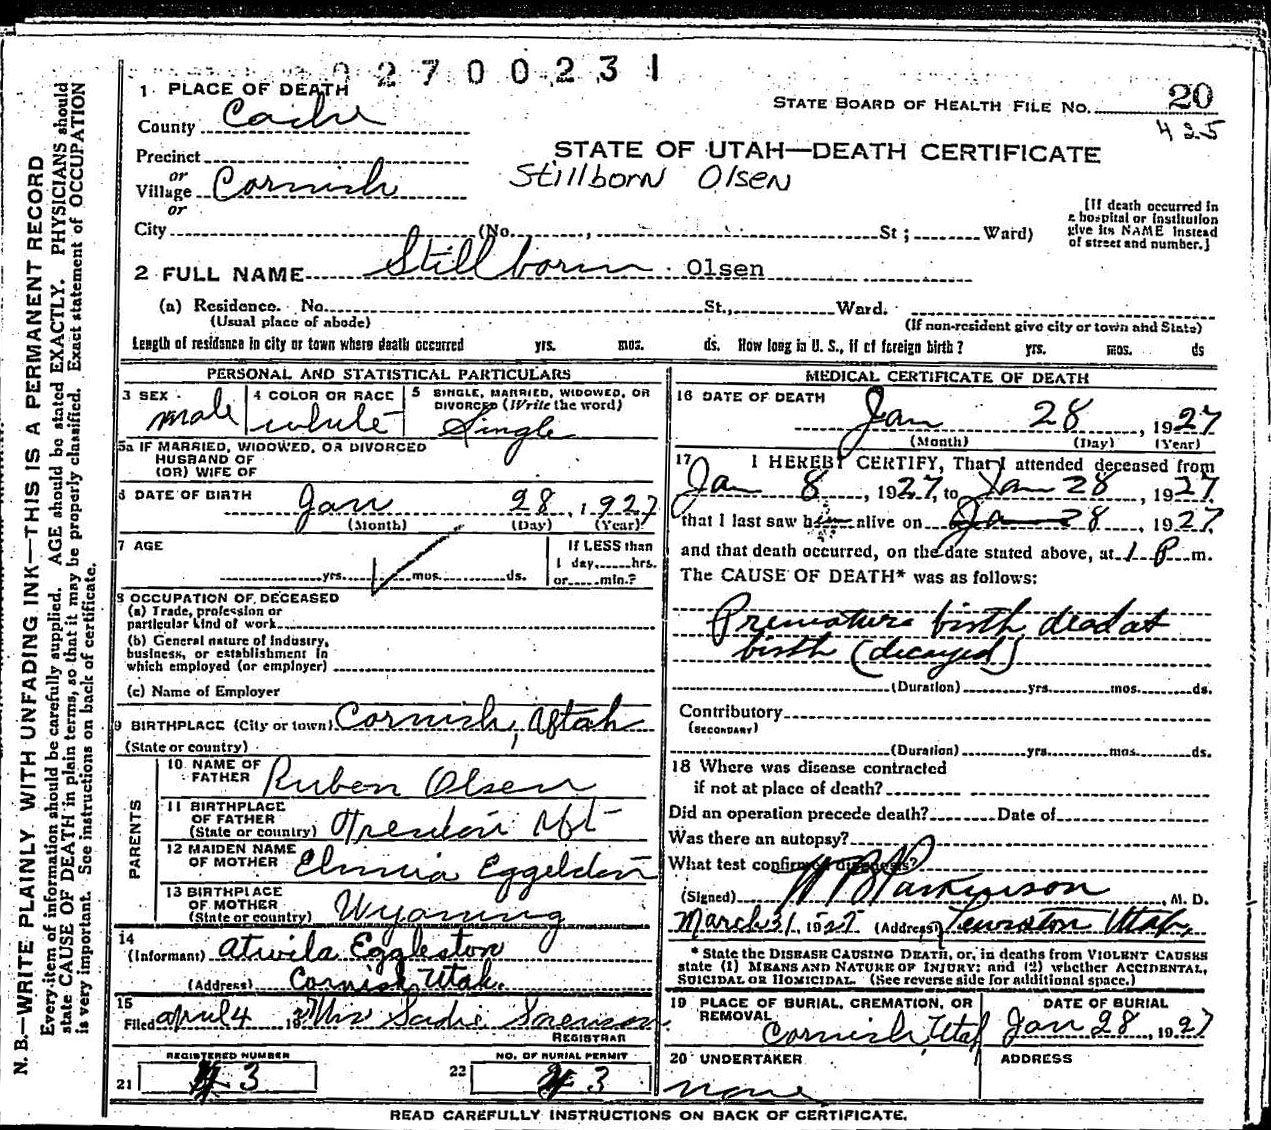 02700231
1 PLACE OF DEATH
County Cache
STATE BOARD OF HEALTH FILE No. 20
425
Precinct
or
Village Cornish
or
STATE OF UTAH—DEATH CERTIFICATE
Stillborn Olsen
City (No. , St ; Ward)
[If death occurred in
a hospital or institution
give its NAME instead
of street and number.]
2 FULL NAME Stillborn Olsen
(a) Residence. No. St., Ward.
(Usual place of abode) (If non-resident give city or town and State)
Length of residence in city or town where death occurred yrs. mos. ds. How long in U. S., if of foreign birth? yrs. mos. ds
PERSONAL AND STATISTICAL PARTICULARS
3 SEX male
4 COLOR OR RACE white
5 SINGLE, MARRIED, WIDOWED, OR DIVORCED (Write the word) Single
5a IF MARRIED, WIDOWED, OR DIVORCED
HUSBAND OF
(OR) WIFE OF
6 DATE OF BIRTH Jan 28, 1927
(Month) (Day) (Year)
7 AGE yrs. mos. ds.
If LESS than
1 day, hrs.
or min.?
8 OCCUPATION OF DECEASED
(a) Trade, profession or
particular kind of work
(b) General nature of industry,
business, or establishment in
which employed (or employer)
(c) Name of Employer
9 BIRTHPLACE (City or town) Cornish, Utah
(State or country)
PARENTS
10 NAME OF
FATHER Ruben Olsen
11 BIRTHPLACE
OF FATHER
(State or country)
12 MAIDEN NAME
OF MOTHER
13 BIRTHPLACE
OF MOTHER
(State or country) Wyoming
14
(Informant) Atwila Eggleston
(Address) Cornish, Utah.
15
Filed April 4 19 Mrs Sadie Sorenson
REGISTRAR
REGISTERED NUMBER
21 3
NO. OF BURIAL PERMIT
22 3
MEDICAL CERTIFICATE OF DEATH
16 DATE OF DEATH
Jan 28, 1927
(Month) (Day) (Year)
17 I HEREBY CERTIFY, That I attended deceased from
Jan 8, 1927, to Jan 28, 1927,
that I last saw him alive on Jan 28, 1927
and that death occurred, on the date stated above, at 1 P m.
The CAUSE OF DEATH* was as follows:
Premature birth dead at
birth (decayed)
(Duration) yrs. mos. ds.
Contributory
(SECONDARY)
(Duration) yrs. mos. ds.
18 Where was disease contracted
if not at place of death?
Did an operation precede death? Date of
Was there an autopsy?
What test confirmed diagnosis?
(Signed) W B Parkinson, M. D.
March 31, 1927 (Address) Lewiston Utah,
* State the DISEASE CAUSING DEATH, or, in deaths from VIOLENT CAUSES
state (1) MEANS AND NATURE OF INJURY; and (2) whether ACCIDENTAL,
SUICIDAL OR HOMICIDAL. (See reverse side for additional space.)
19 PLACE OF BURIAL, CREMATION, OR
REMOVAL
Cornish Utah
DATE OF BURIAL
Jan 28, 1927
20 UNDERTAKER
none
ADDRESS
READ CAREFULLY INSTRUCTIONS ON BACK OF CERTIFICATE.
N. B.—WRITE PLAINLY WITH UNFADING INK—THIS IS A PERMANENT RECORD
Every item of information should be carefully supplied. AGE should be stated EXACTLY. PHYSICIANS should
state CAUSE OF DEATH in plain terms, so that it may be properly classified. Exact statement of OCCUPATION
is very important. See instructions on back of certificate.